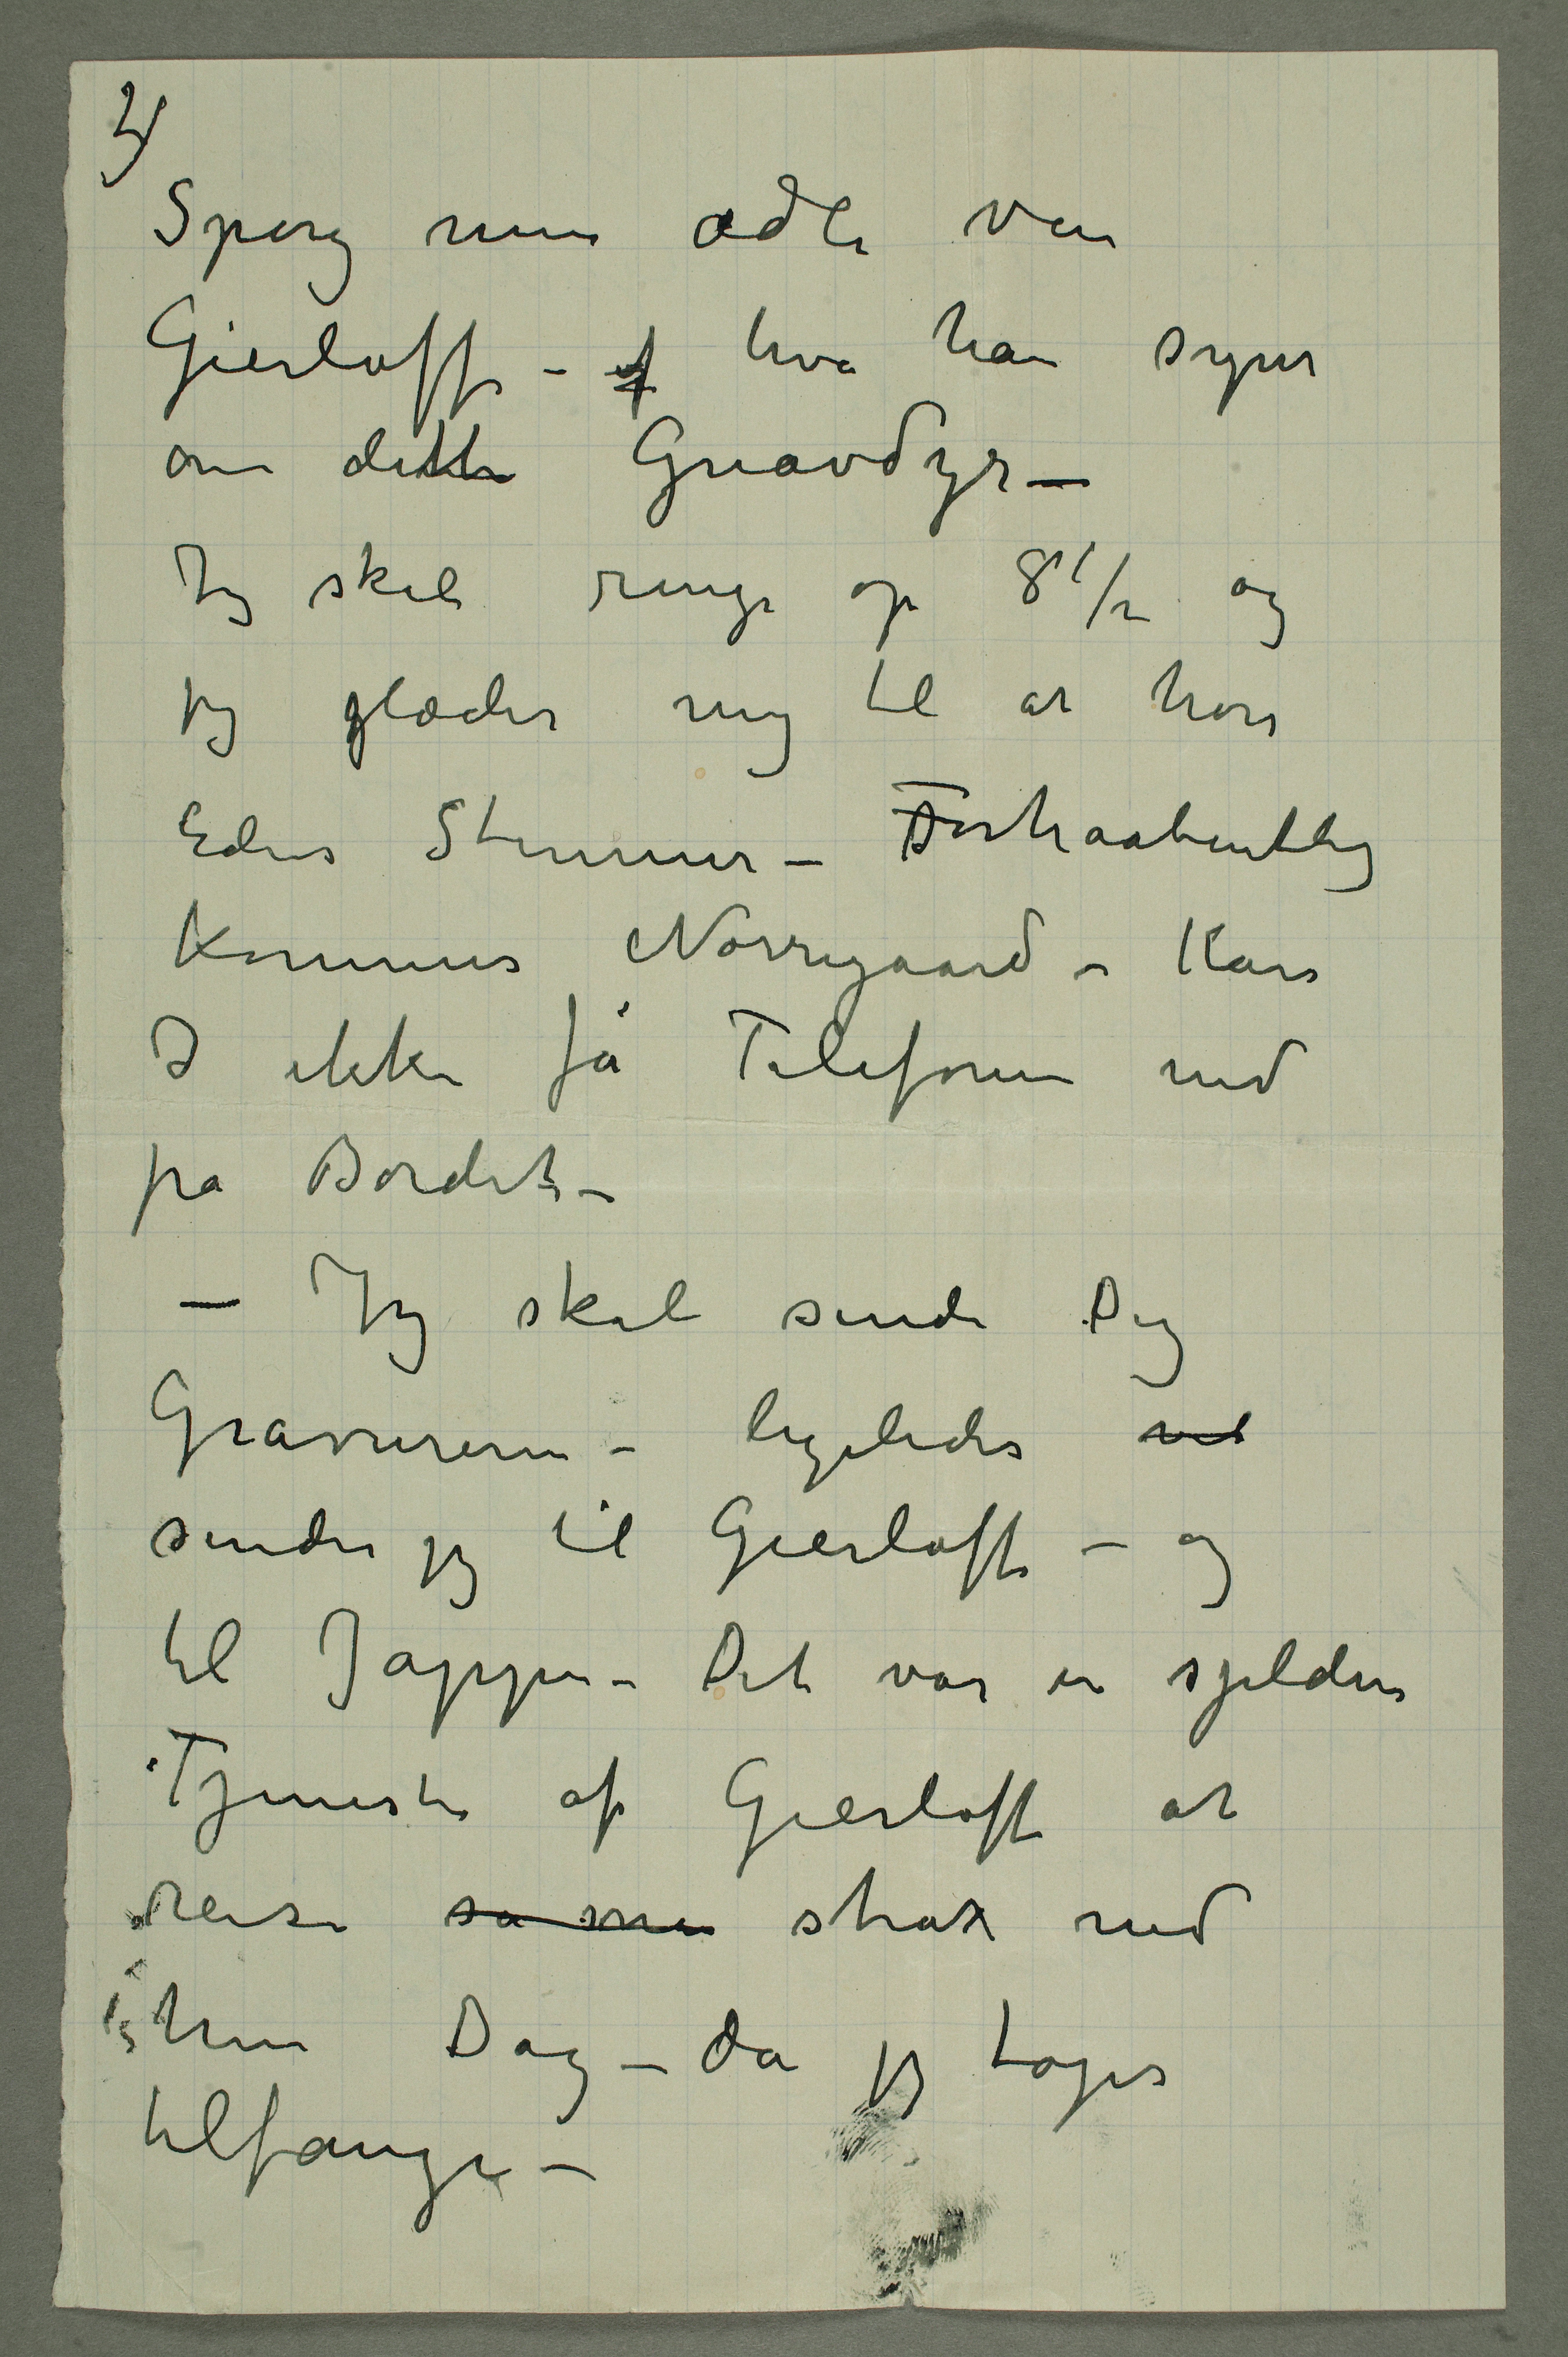 4)
Spørg min ædle ven
Gierløff – hva han syns
om dette Gnavdyr –
Jeg skal ringe op 8 1/2 og
jeg glæder mig til at høre
Eders Stemmer – Forhaabentlig
kommer Nørregaard – Kan
I ikke få Telefonen ned
på Bordet –
– Jeg skal sende Dig
Gravuren – ligeledes vil
sender jeg til Gierløff – og
til Jappe – Det var en sjelden
Tjeneste af Gierløff at
reise så man strax ned
hin Dag – da jeg toges
tilfange –